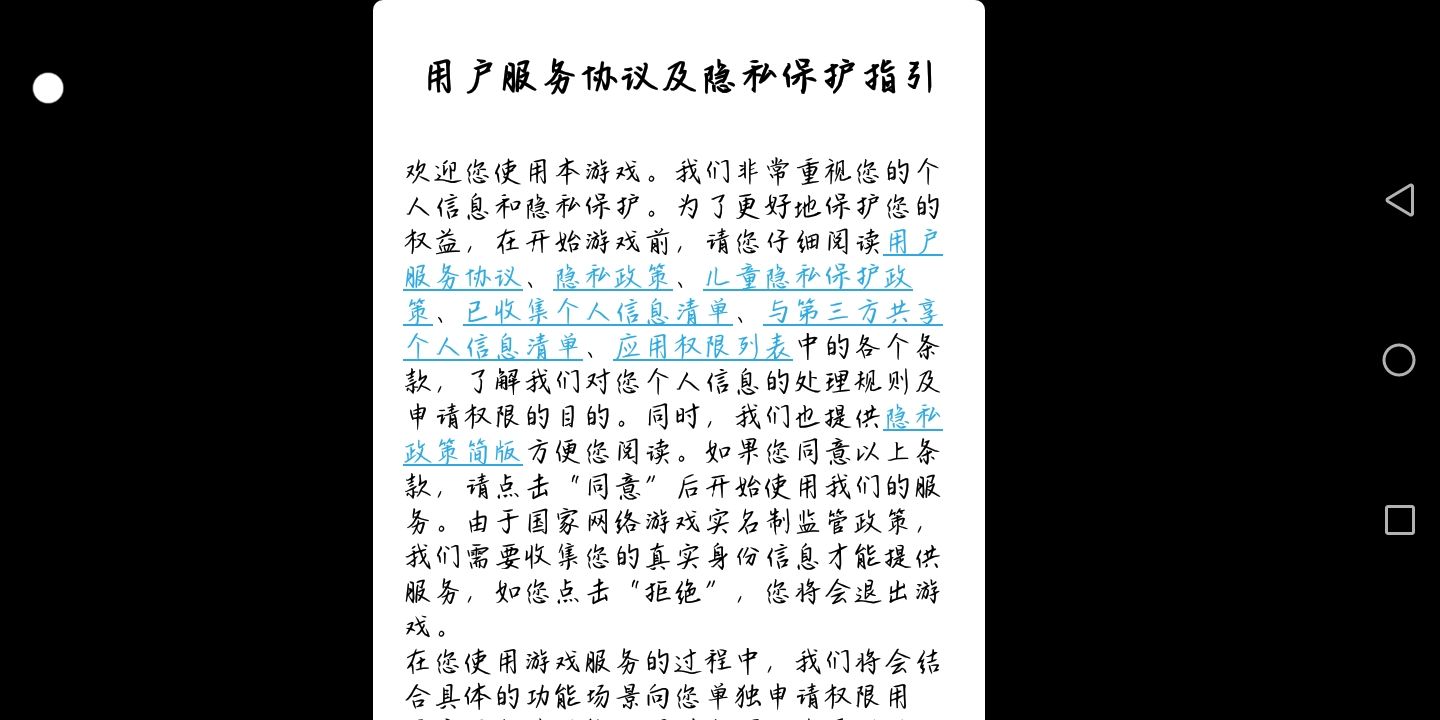 用户服务协议及隐私保护指引
欢迎您使用本游戏。我们非常重视您的个
人信息和隐私保护。为了更好地保护您的
权益，在开始游戏前，请您仔细阅读用户
服务协议、隐私政策、儿童隐私保护政
策、已收集个人信息清单、与第三方共享
个人信息清单、应用权限列表中的各个条
款，了解我们对您个人信息的处理规则及
申请权限的目的。同时，我们也提供隐私
政策简版方便您阅读。如果您同意以上条
款，请点击“同意”后开始使用我们的服
务。由于国家网络游戏实名制监管政策，
我们需要收集您的真实身份信息才能提供
服务，如您点击“拒绝”，您将会退出游
戏。
在您使用游戏服务的过程中，我们将会结
合具体的功能场景向您单独申请权限用